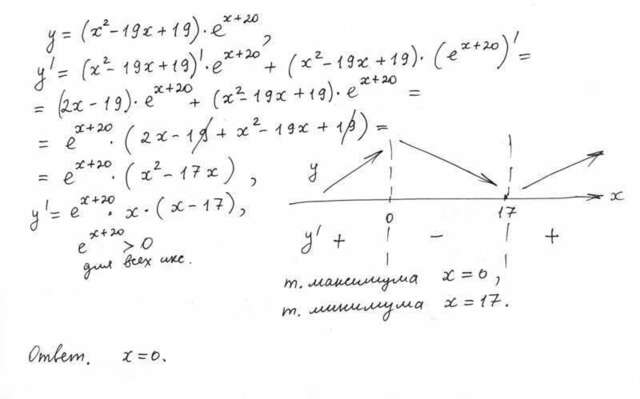 y = (x²-19x+19)·e^(x+20),
y' = (x²-19x+19)'·e^(x+20) + (x²-19x+19)·(e^(x+20))' =
= (2x-19)·e^(x+20) + (x²-19x+19)·e^(x+20) =
= e^(x+20)·(2x-19+x²-19x+19) =
= e^(x+20)·(x²-17x),
y' = e^(x+20)·x·(x-17),
e^(x+20) > 0
для всех икс.
y
0 17 x
y' + - +
т. максимума x=0,
т. минимума x=17.
Ответ. x=0.